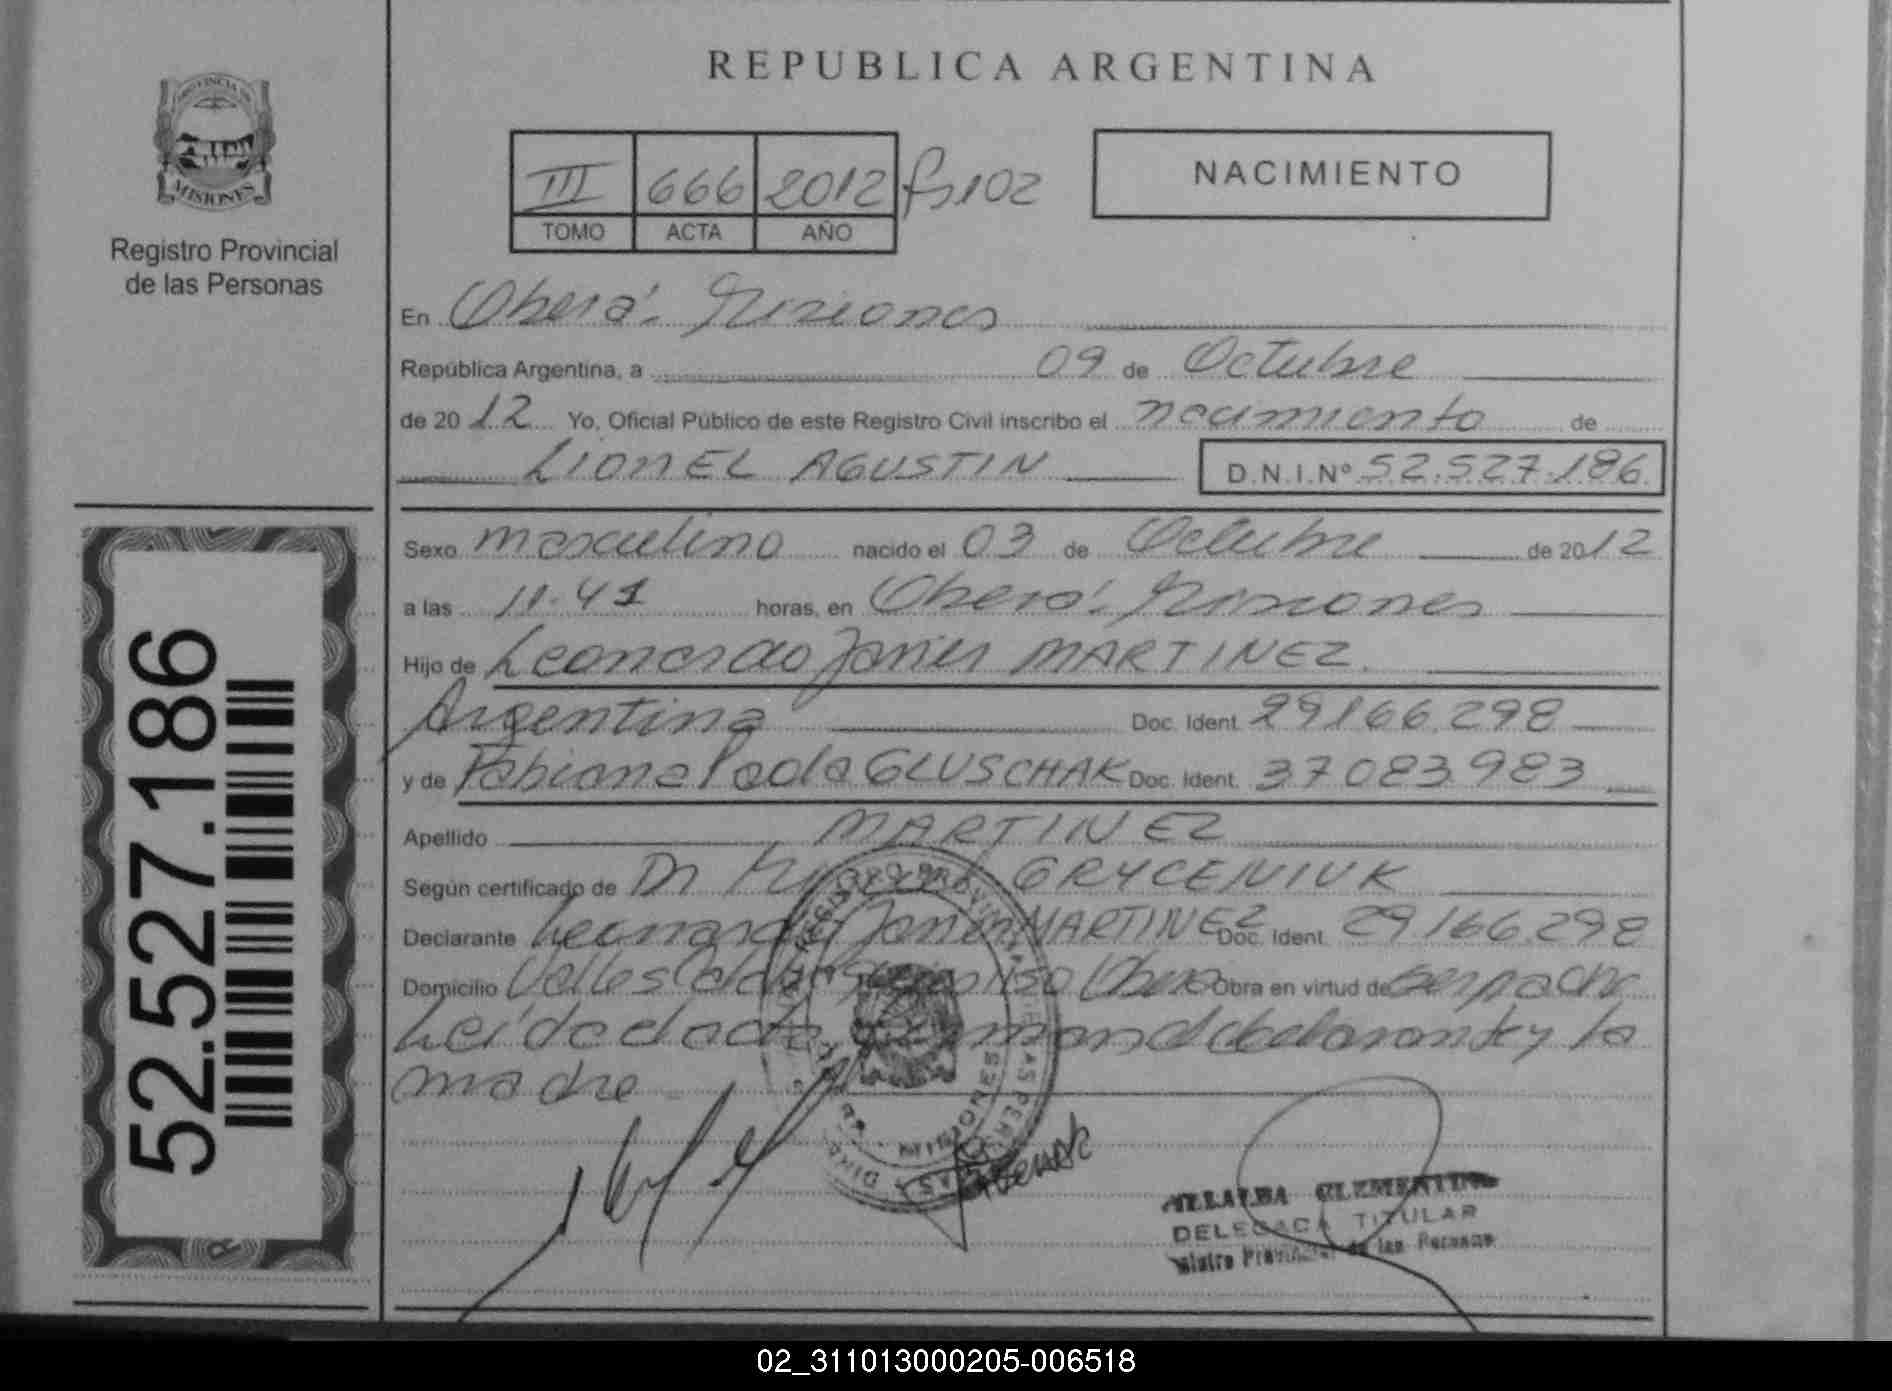 REPUBLICA ARGENTINA
PROVINCIA DE
MISIONES
Registro Provincial
de las Personas
III 666 2012 fs102
TOMO ACTA AÑO
NACIMIENTO
En Oberá. Misiones
República Argentina, a 09 de Octubre
de 2012 Yo, Oficial Público de este Registro Civil inscribo el nacimiento de
LIONEL AGUSTIN D.N.I.Nº 52.527.186
Sexo masculino nacido el 03 de Octubre de 2012
a las 11.41 horas, en Oberá. Misiones
Hijo de Leonardo Javier MARTINEZ
Argentina Doc. Ident. 29.166.298
y de Fabiana Paola GLUSCHAK Doc. Ident. 37.083.983
Apellido MARTINEZ
Según certificado de Dr GRYCENIUK
Declarante Leonardo Javier MARTINEZ Doc. Ident. 29.166.298
Domicilio Obera Obra en virtud de ser padre
Leída el acta declarante y la
madre
52.527.186
VILLALBA CLEMENTINA
DELEGADA TITULAR
Registro Provincial de las Personas
02_311013000205-006518